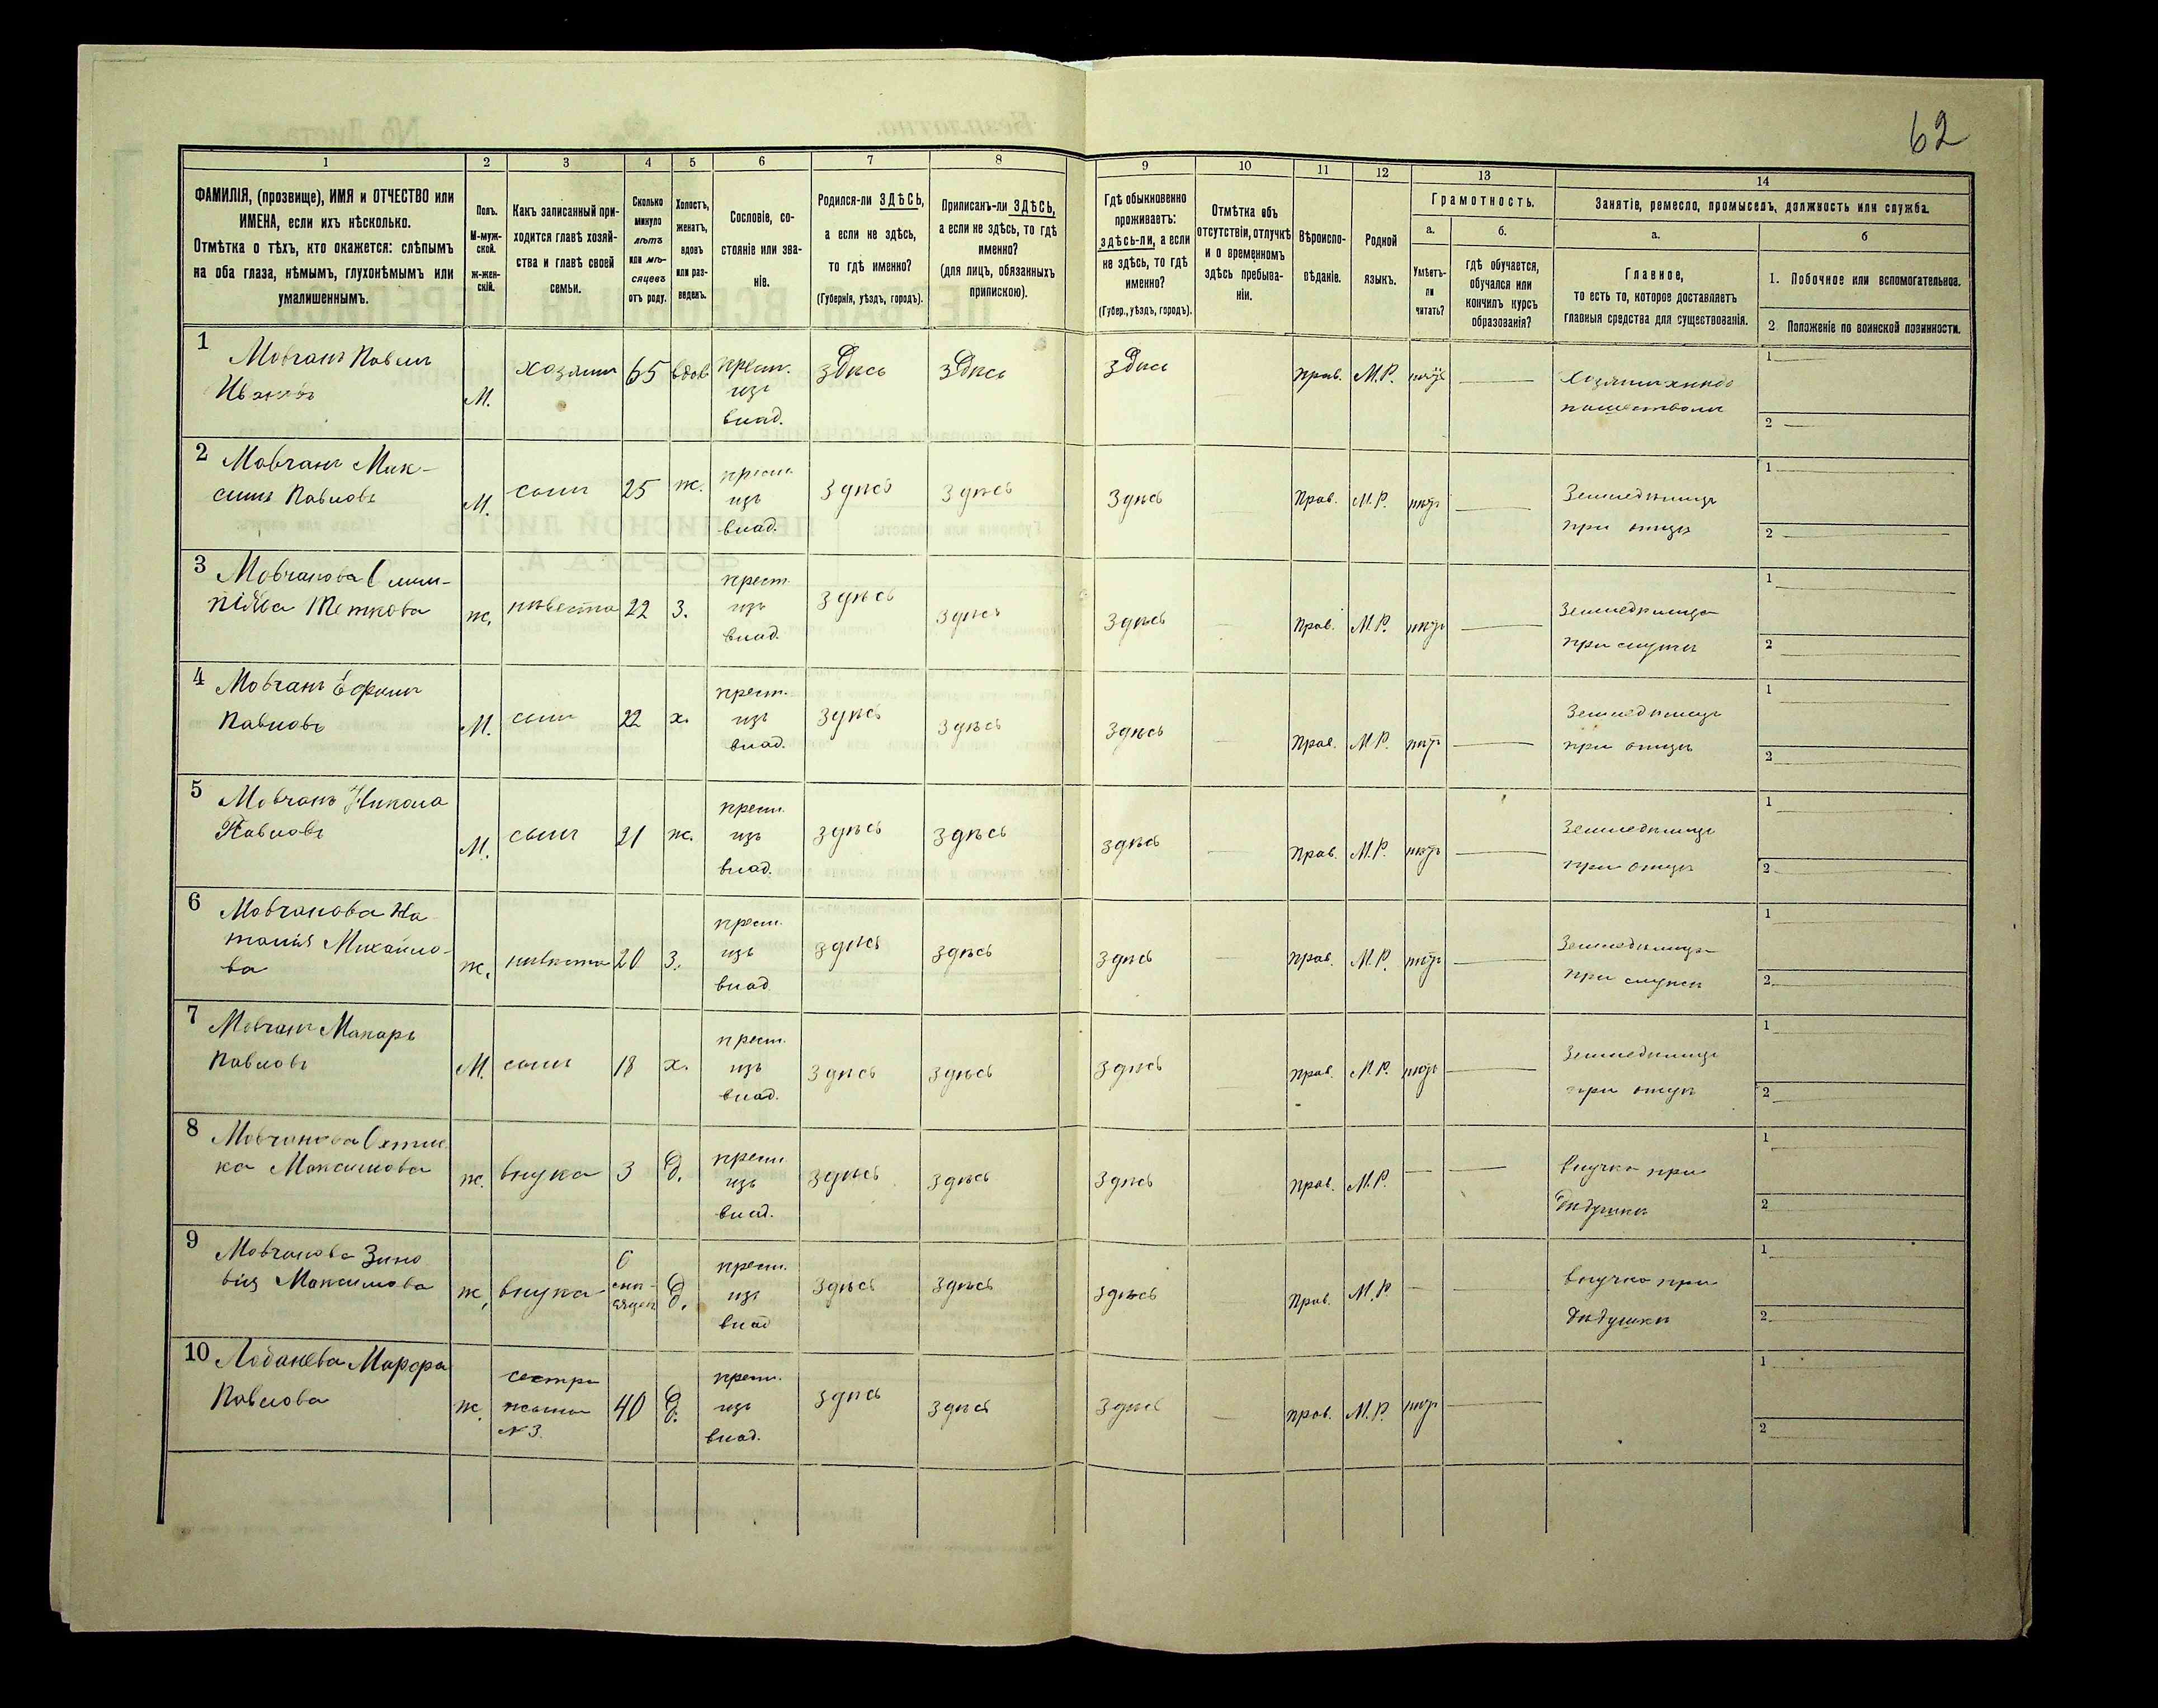 62
1 2 3 4 5 6 7 8 9 10 11 12 13 14
ФАМИЛІЯ, (прозвище), ИМЯ и ОТЧЕСТВО или
ИМЕНА, если ихъ нѣсколько.
Отмѣтка о тѣхъ, кто окажется: слѣпымъ
на оба глаза, нѣмымъ, глухонѣмымъ или
умалишеннымъ.
Полъ.
М-муж-
ской.
Ж-жен-
скій.
Какъ записанный при-
ходится главѣ хозяй-
ства и главѣ своей
семьи.
Сколько
минуло
лѣтъ
или мѣ-
сяцевъ
отъ роду.
Холостъ,
женатъ,
вдовъ
или раз-
веденъ.
Сословіе, со-
стояніе или зва-
ніе.
Родился-ли ЗДѢСЬ,
а если не здѣсь,
то гдѣ именно?
(Губернія, уѣздъ, городъ).
Приписанъ-ли ЗДѢСЬ,
а если не здѣсь, то гдѣ
именно?
(для лицъ, обязанныхъ
припискою).
Гдѣ обыкновенно
проживаетъ:
здѣсь-ли, а если
не здѣсь, то гдѣ
именно?
(Губер., уѣздъ, городъ).
Отмѣтка объ
отсутствіи, отлучкѣ
и о временномъ
здѣсь пребыва-
ніи.
Вѣроиспо-
вѣданіе.
Родной
языкъ.
Грамотность.
а.
Умѣетъ-
ли
читать?
б.
гдѣ обучается,
обучался или
кончилъ курсъ
образованія?
Занятіе, ремесло, промыселъ, должность или служба.
а.
Главное,
то есть то, которое доставляетъ
главныя средства для существованія.
б
1. Побочное или вспомогательное.
2. Положеніе по воинской повинности.
1 Мовчанъ Павелъ
Ивановъ
М. хозяинъ 65 вдов
крест.
изъ
влад.
здѣсь здѣсь здѣсь прав. М.Р.
1
2
2 Мовчанъ Мак-
симъ Павловъ
М. сынъ 25 ж.
крест.
изъ
влад.
здѣсь здѣсь здѣсь Прав. М.Р. нѣтъ
Земледѣлецъ
при отцѣ
1
2
3 Мовчанова Олим-
М
ж. невѣстка 22 З.
крест.
изъ
влад.
здѣсь здѣсь здѣсь Прав. М.Р. нѣтъ
Земледѣлица
при мужѣ
1
2
4 Мовчанъ Ефимъ
Павловъ
М. сынъ 22 х.
крест.
изъ
влад.
здѣсь здѣсь здѣсь Прав. М.Р. нѣтъ
Земледѣлецъ
при отцѣ
1
2
5 Мовчанъ Никола
Павловъ
М. сынъ 21 ж.
крест.
изъ
влад.
здѣсь здѣсь здѣсь Прав. М.Р. нѣтъ
Земледѣлецъ
при отцѣ
1
2
6 Мовчанова На-
талія Михайло-
ва
ж. невѣстка 20 З.
крест.
изъ
влад
здѣсь здѣсь здѣсь Прав. М.Р. нѣтъ
Земледѣлица
при мужѣ
1
2
7 Мовчанъ Макаръ
Павловъ
М. сынъ 18 х.
крест.
изъ
влад.
здѣсь здѣсь здѣсь прав. М.Р. нѣтъ
Земледѣлецъ
при отцѣ
1
2
8 Мовчанова
ка Максимова
ж. внука 3 д.
крест.
изъ
влад.
здѣсь здѣсь здѣсь прав. М.Р.
внучка при
дѣдушкѣ
1
2
9 Мовчанова Зино
вія Максимова
ж, внука 6 д.
крест.
изъ
влад
здѣсь здѣсь здѣсь Прав. М.Р.
внучка при
дѣдушкѣ
1
2
10 Марфа
Павлова
ж.
сестра
жены
№3.
40 д.
крест.
изъ
влад.
здѣсь здѣсь здѣсь прав. М.Р. нѣтъ
1
2